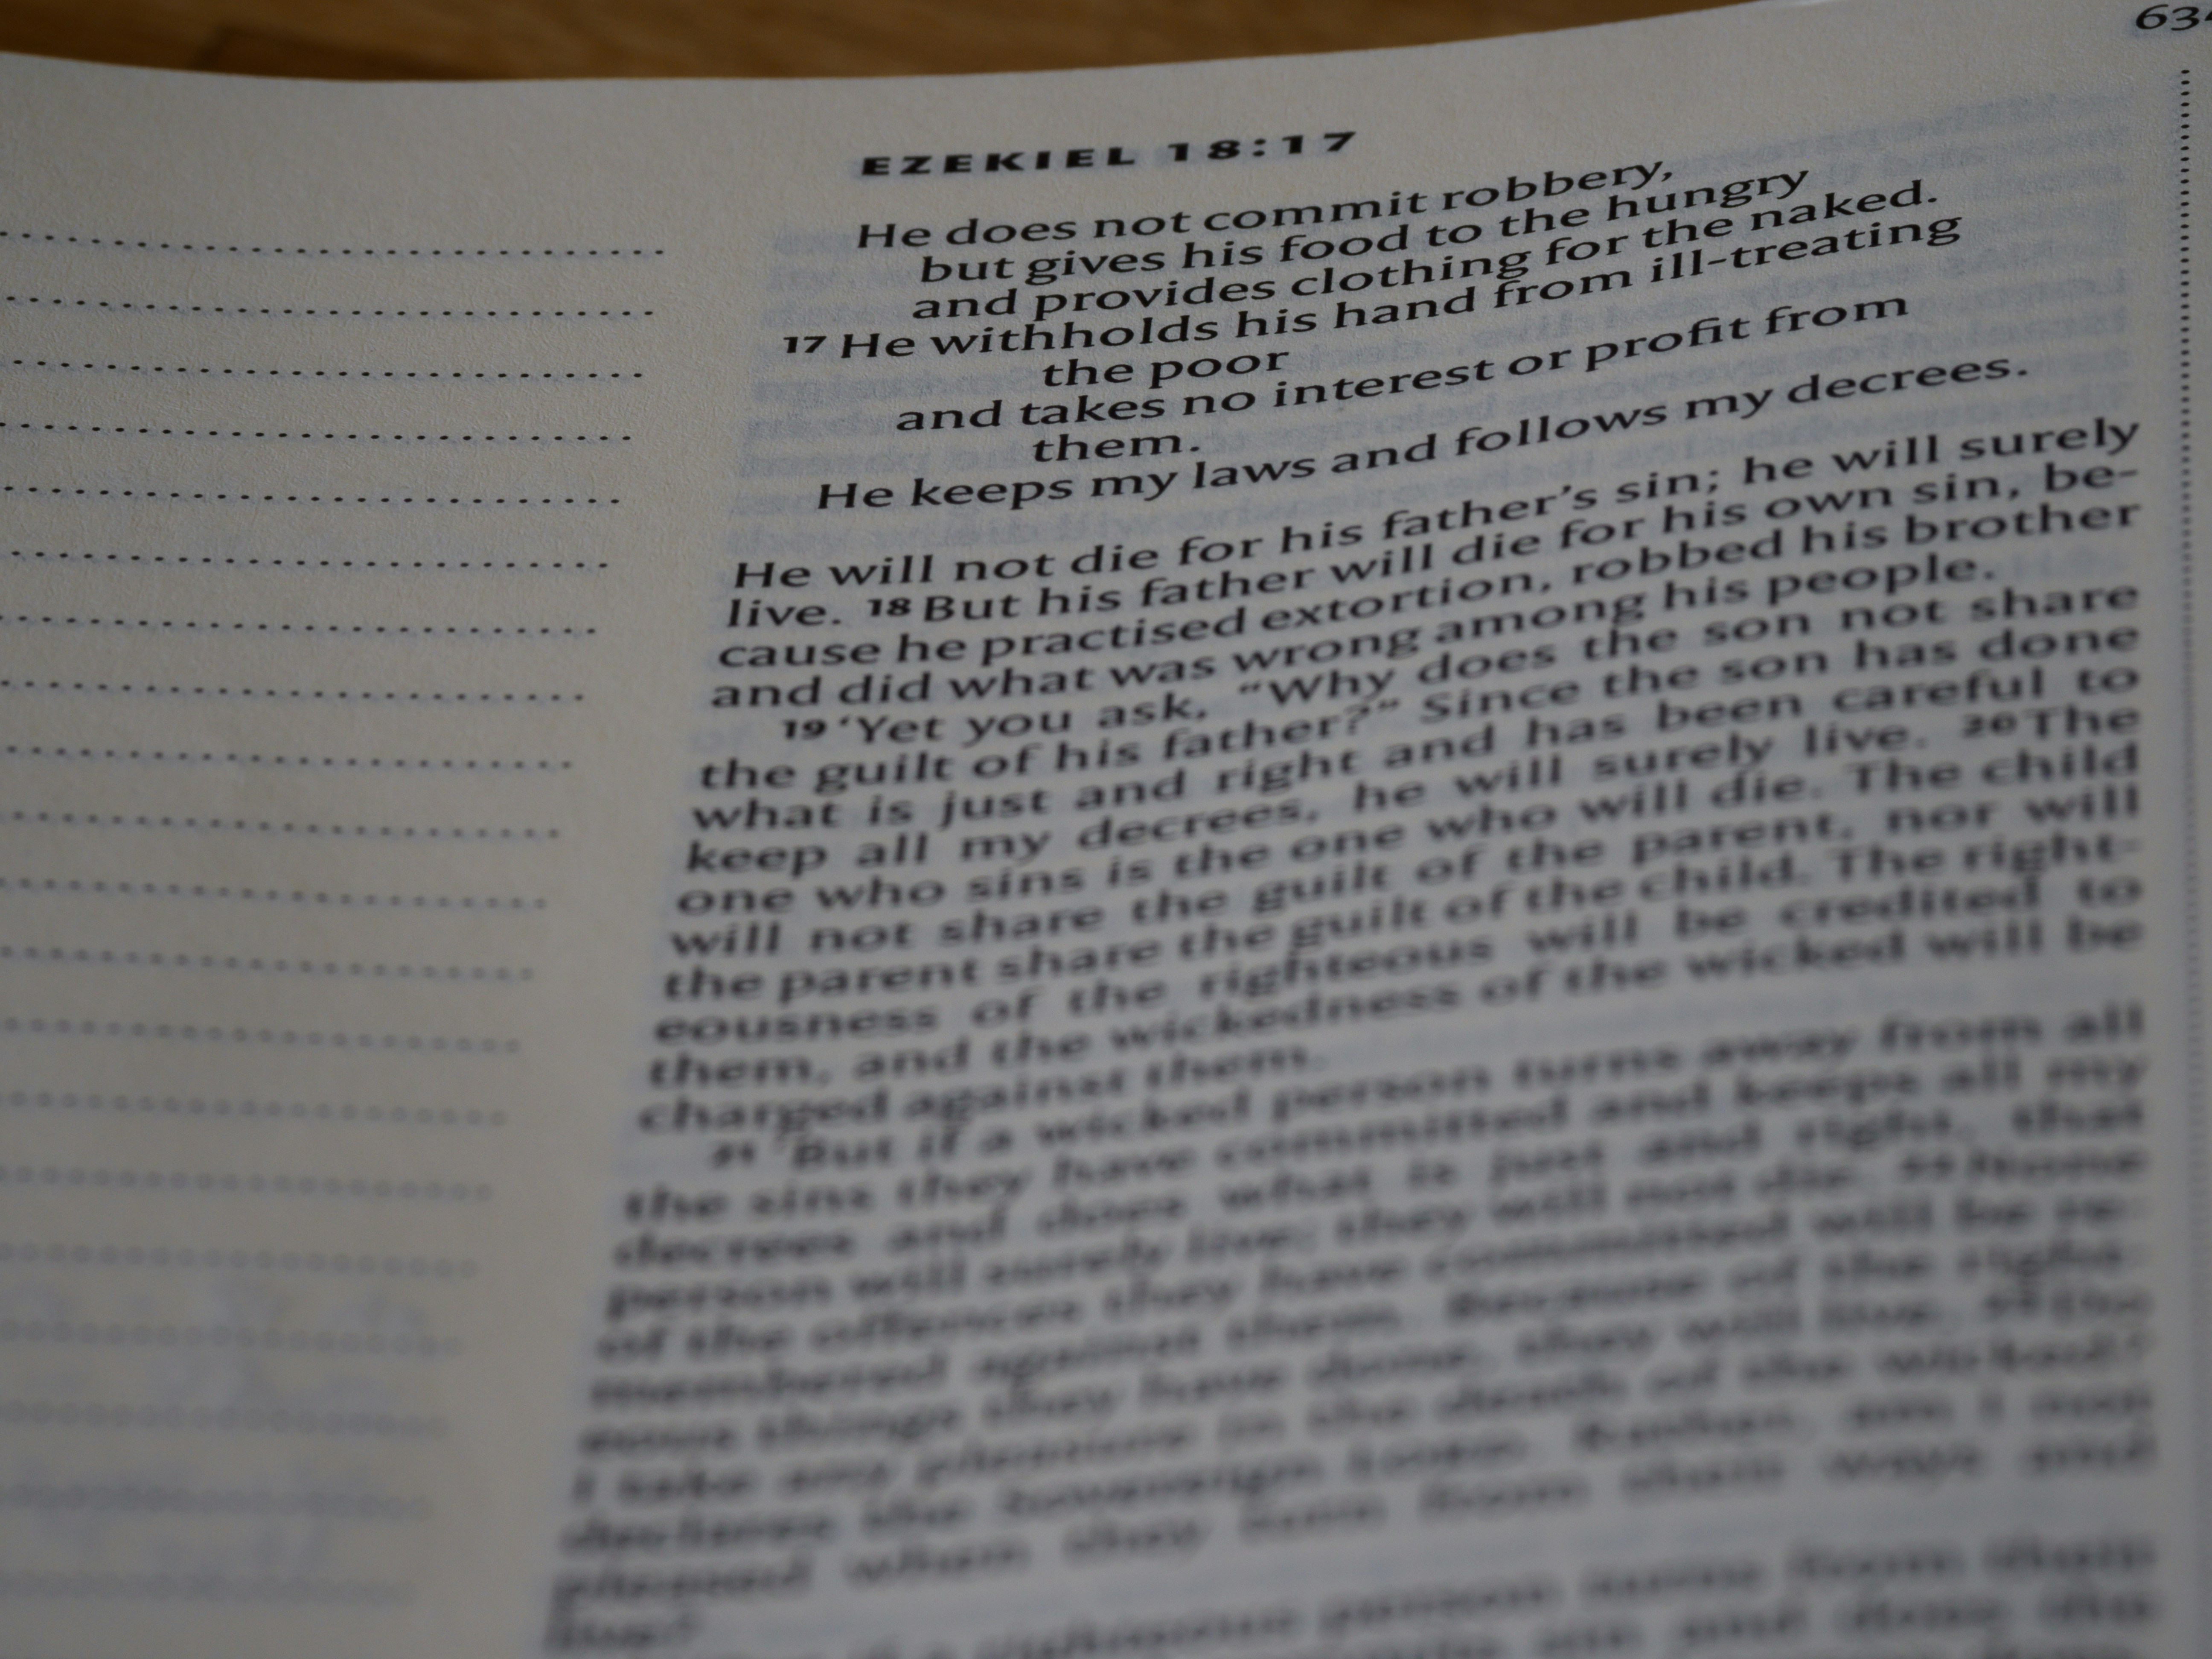 634
EZEKIEL 18:17
He does not commit robbery,
but gives his food to the hungry
and provides clothing for the naked.
17 He withholds his hand from ill-treating
the poor
and takes no interest or profit from
them.
He keeps my laws and follows my decrees.
He will not die for his father's sin; he will surely
live. 18 But his father will die for his own sin, be-
cause he practised extortion, robbed his brother
and did what was wrong among his people.
19 ‘Yet you ask, “Why does the son not share
the guilt of his father?” Since the son has done
what is just and right and has been careful to
keep all my decrees, he will surely live. 20 The
one who sins is the one who will die. The child
will not share the guilt of the parent, nor will
the parent share the guilt of the child. The right-
eousness of the righteous will be credited to
them, and the wickedness of the wicked will be
charged against them.
21 ‘But if a wicked person turns away from all
the sins they have committed and keeps all my
decrees and does what is just and right, that
person will surely live; they will not die. 22 None
of the offences they have committed will be re-
membered against them. Because of the right-
eous things they have done, they will live. 23 Do
I take any pleasure in the death of the wicked?
declares the Sovereign LORD. Rather, am I not
pleased when they turn from their ways and
live?